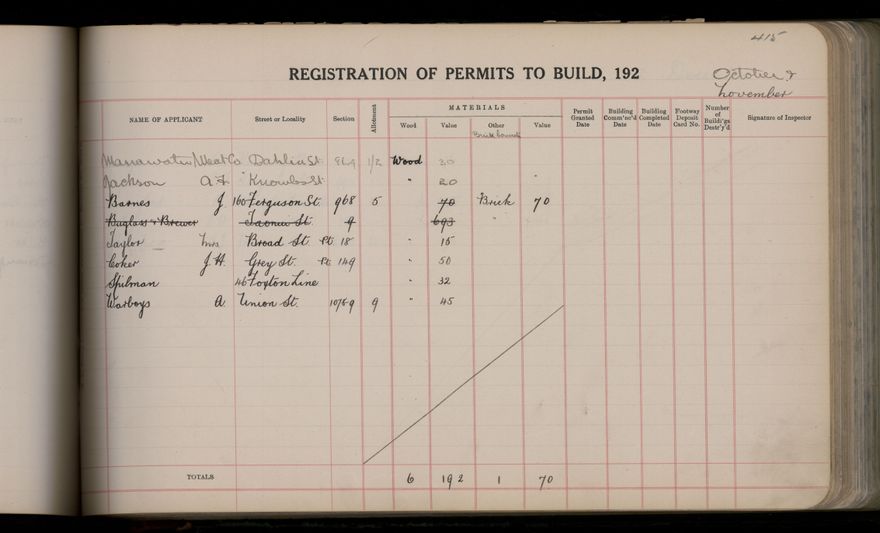 415
REGISTRATION OF PERMITS TO BUILD, 192
October &
November
NAME OF APPLICANT Street or Locality Section Allotment MATERIALS Permit Granted Date Building Comm'nc'd Date Building Completed Date Footway Deposit Card No. Number of Buildi'gs Destr'y'd Signature of Inspector
Wood Value Other Value
Manawatu Meat Co Dahlia St 869 1/2 Wood 30
Jackson A F Knowles St " 20 "
Barnes J. 160 Ferguson St. 968 5 70 Brick 70
Buglass & Brewer Taonui St. 9 693 "
Taylor Mrs Broad St. Pt. 18 " 15
Coker J.H. Grey St. Pt. 149 " 50
Spilman 46 Foxton Line " 32
Warboys A. Union St. 1075-9 9 " 45
TOTALS 6 192 1 70